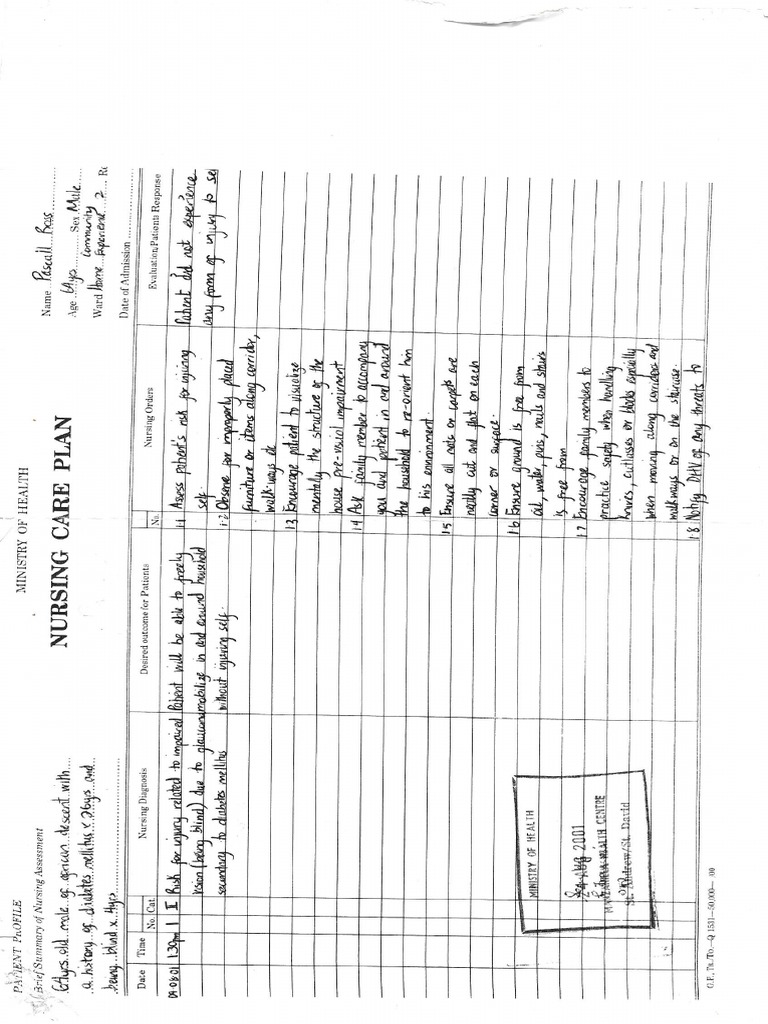 MINISTRY OF HEALTH
NURSING CARE PLAN
PATIENT PROFILE
Brief Summary of Nursing Assessment
64yrs old male of african descent with
a history of diabetes mellitus x 26yrs and
being blind x 4yrs
Name Pascall Ross
Age 64yrs Sex Male
Community
Ward Home Experience 2
Date of Admission
Date Time No. Cat. Nursing Diagnosis Desired outcome for Patients No. Nursing Orders Evaluation/Patients Response
09·08·01 1:30pm 1 II Risk for injury related to impaired
vision (being blind) due to glaucoma
secondary to diabetes mellitus
Patient will be able to freely
mobilize in and around household
without injuring self.
1·1 Assess Patient's risk for injuring
self.
1·2 Observe for improperly placed
furniture or items along corridor,
walk-ways etc
1·3 Encourage patient to visualize
mentally the structure of the
house pre-visual impairment
1·4 Ask family member to accompany
you and patient in and around
the household to re-orient him
to his environment.
1·5 Ensure all mats or carpets are
neatly cut and flat on each
corner or surface.
1·6 Ensure ground is free from
oil, water, pins, nails and stairs
is free from
1·7 Encourage family members to
practice safety when handling
knives, cutlasses or blades especially
when moving along corridors and
walkways or on the staircase.
1·8 Notify DHV of any threats to
Patient did not experience
any form of injury to sel
MINISTRY OF HEALTH
AUG 2001
HEALTH CENTRE
St. Andrew/St. David
G.P., Tr./To.—Q 1531—50,000— /00